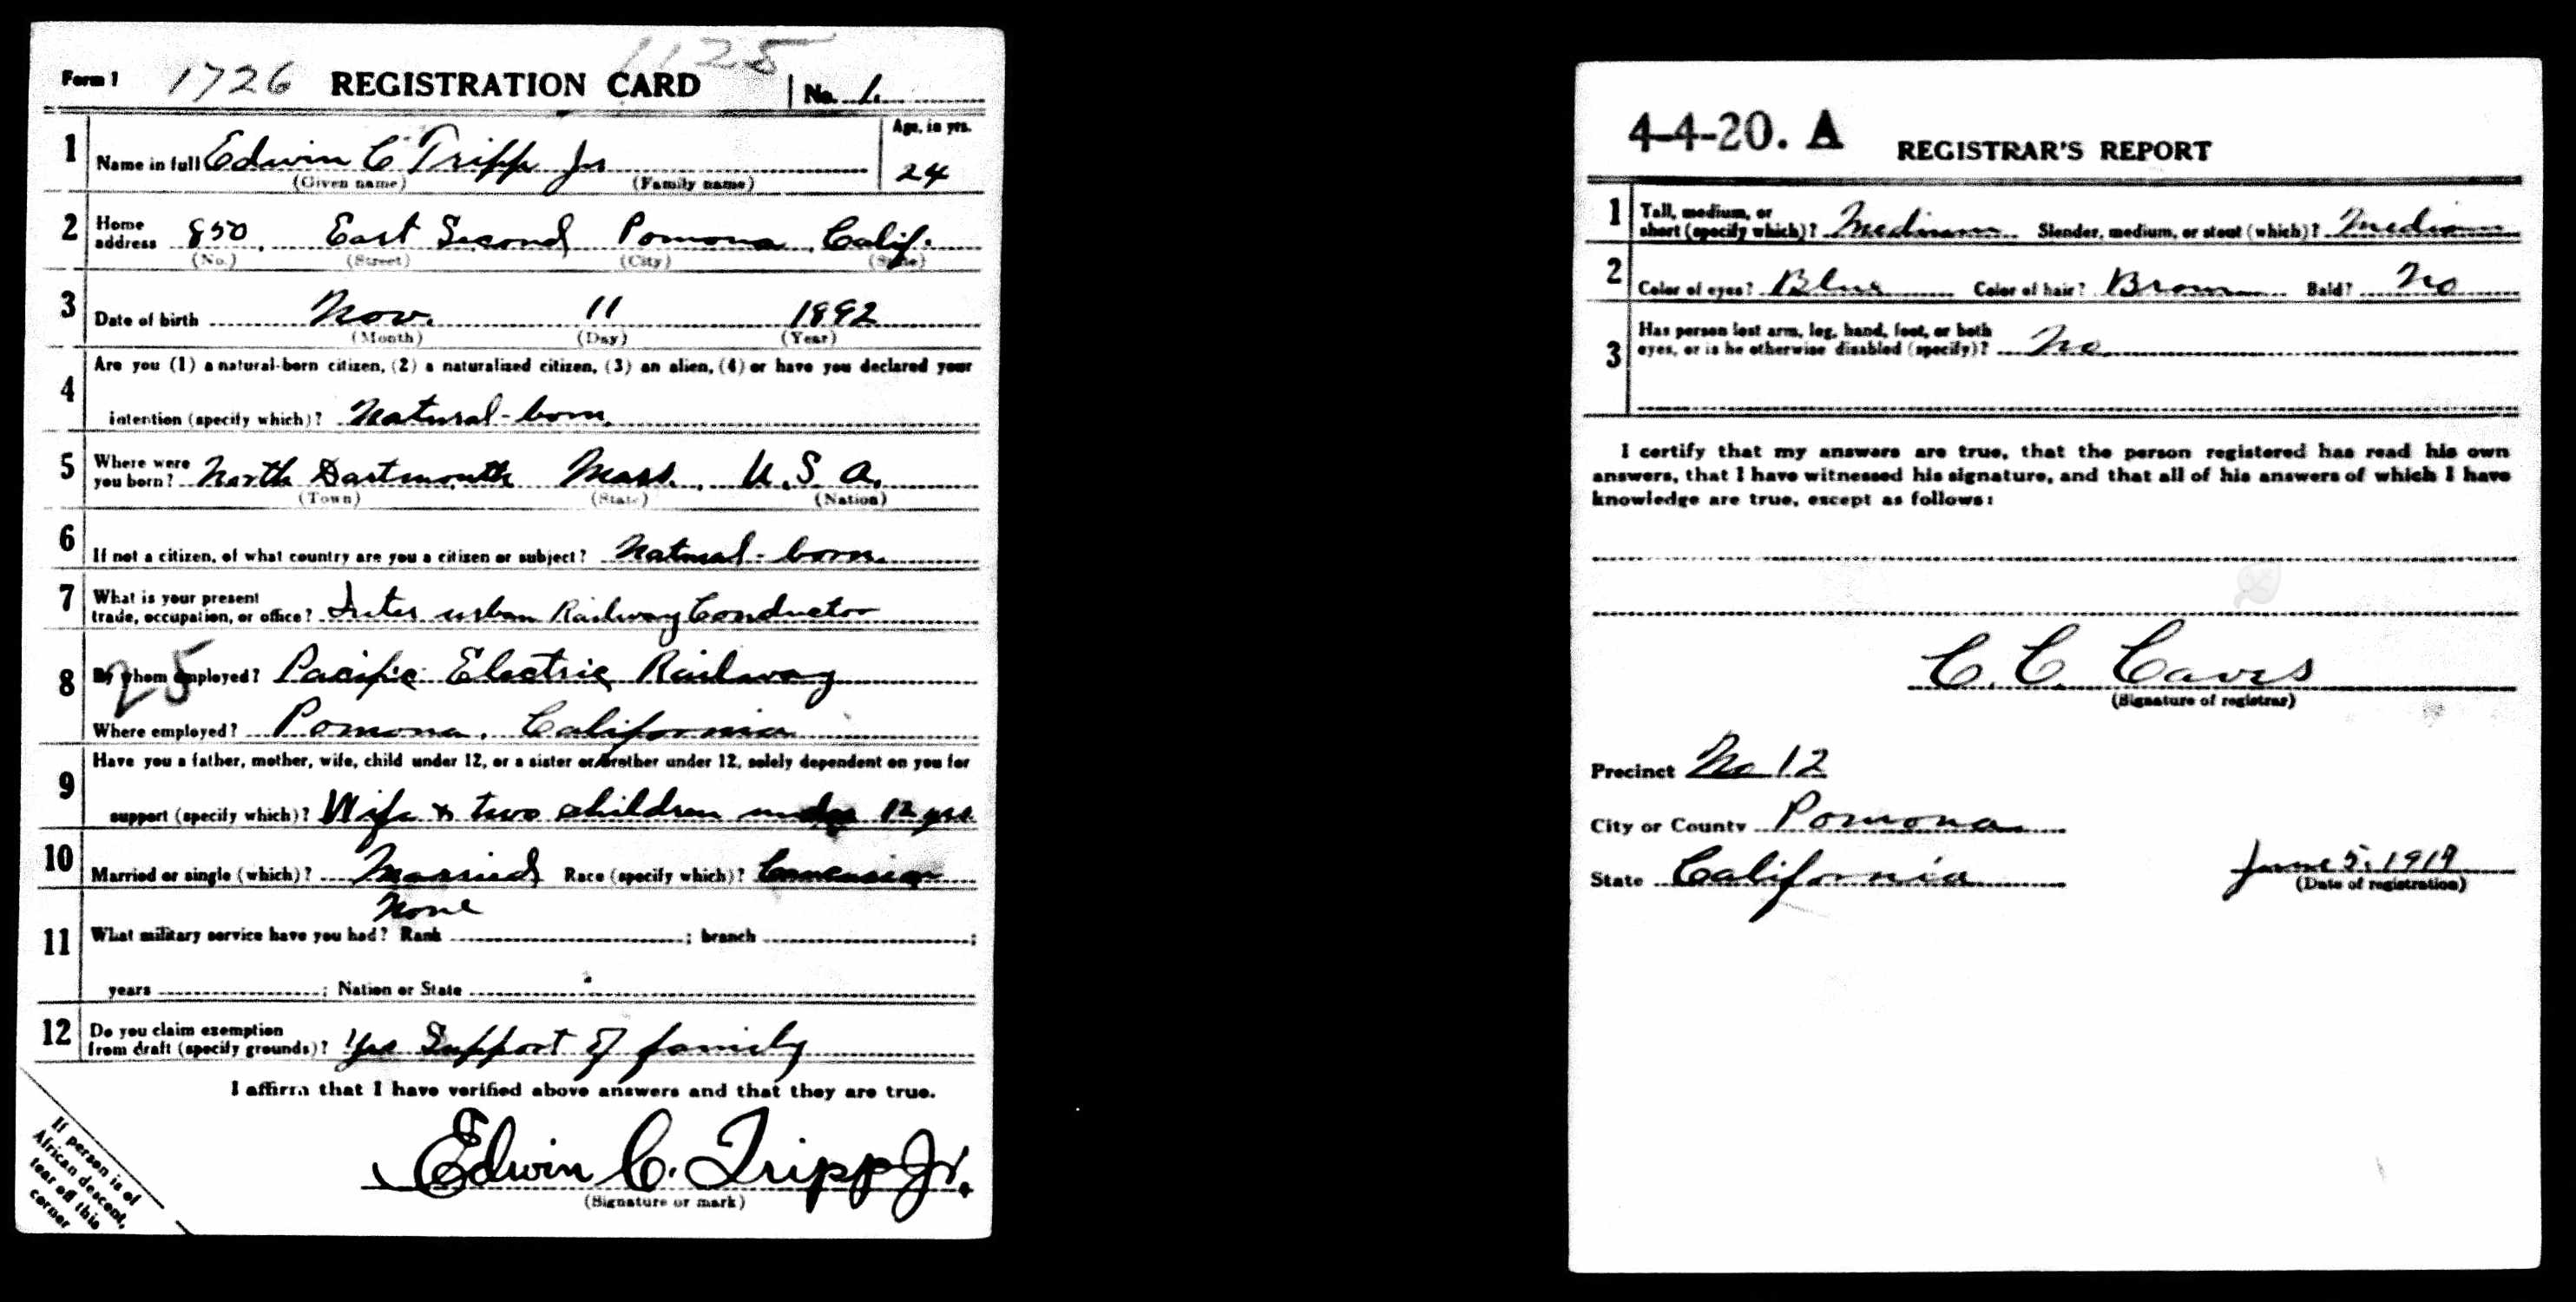 1125
Form 1 1726 REGISTRATION CARD No. 1.
1 Name in full Edwin C Tripp Jr Age, in yrs. 24
(Given name) (Family name)
2 Home address 850 East Second Pomona Calif.
(No.) (Street) (City) (State)
3 Date of birth Nov. 11 1892
(Month) (Day) (Year)
4 Are you (1) a natural-born citizen, (2) a naturalized citizen, (3) an alien, (4) or have you declared your
intention (specify which)? Natural-born
5 Where were you born? North Dartmouth Mass. U.S.A.
(Town) (State) (Nation)
6 If not a citizen, of what country are you a citizen or subject? Natural-born
7 What is your present
trade, occupation, or office? Inter urban Railway Conductor
8 By whom employed? Pacific Electric Railway
25
Where employed? Pomona, California
9 Have you a father, mother, wife, child under 12, or a sister or brother under 12, solely dependent on you for
support (specify which)? Wife & two children under 12 yrs
10 Married or single (which)? Married Race (specify which)? Caucasian
None
11 What military service have you had? Rank ; branch ;
years ; Nation or State
12 Do you claim exemption
from draft (specify grounds)? Yes Support of family
I affirm that I have verified above answers and that they are true.
Edwin C. Tripp Jr.
(Signature or mark)
If person is of
African descent,
tear off this
corner
4-4-20. A REGISTRAR'S REPORT
1 Tall, medium, or
short (specify which)? Medium Slender, medium, or stout (which)? Medium
2 Color of eyes? Blue Color of hair? Brown Bald? No
3 Has person lost arm, leg, hand, foot, or both
eyes, or is he otherwise disabled (specify)? No
I certify that my answers are true, that the person registered has read his own
answers, that I have witnessed his signature, and that all of his answers of which I have
knowledge are true, except as follows:
C. C. Caves
(Signature of registrar)
Precinct No 12
City or County Pomona
State California June 5, 1917
(Date of registration)